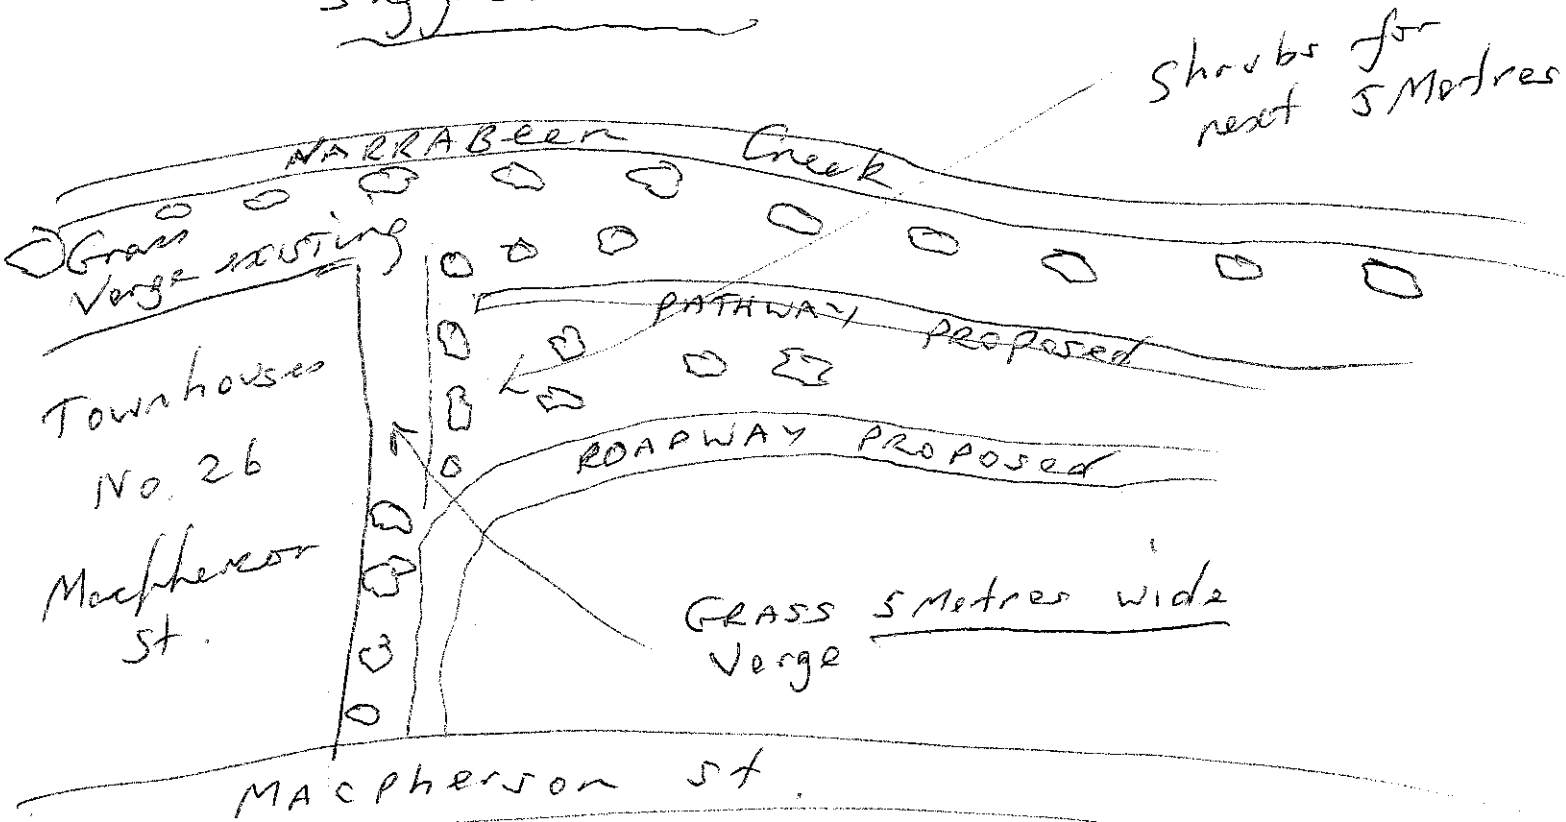 Shrubs for
next 5 Metres
NARRABeen Creek
Grass
Verge existing
PATHWAY PROPOSed
Townhouses
No. 26
Macpherson
St.
ROADWAY PROPOSed
GRASS 5 Metres wide
Verge
MACPherson St.